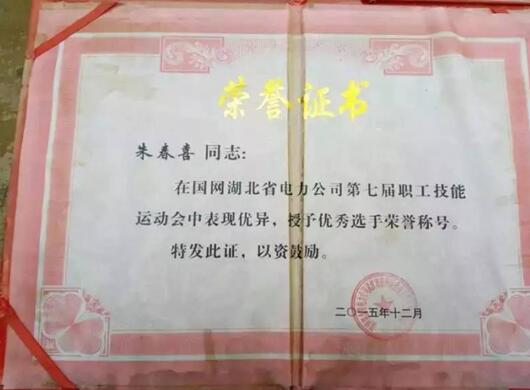 荣誉证书
朱春喜 同志:
在国网湖北省电力公司第七届职工技能
运动会中表现优异，授予优秀选手荣誉称号。
特发此证，以资鼓励。
二〇一五年十二月